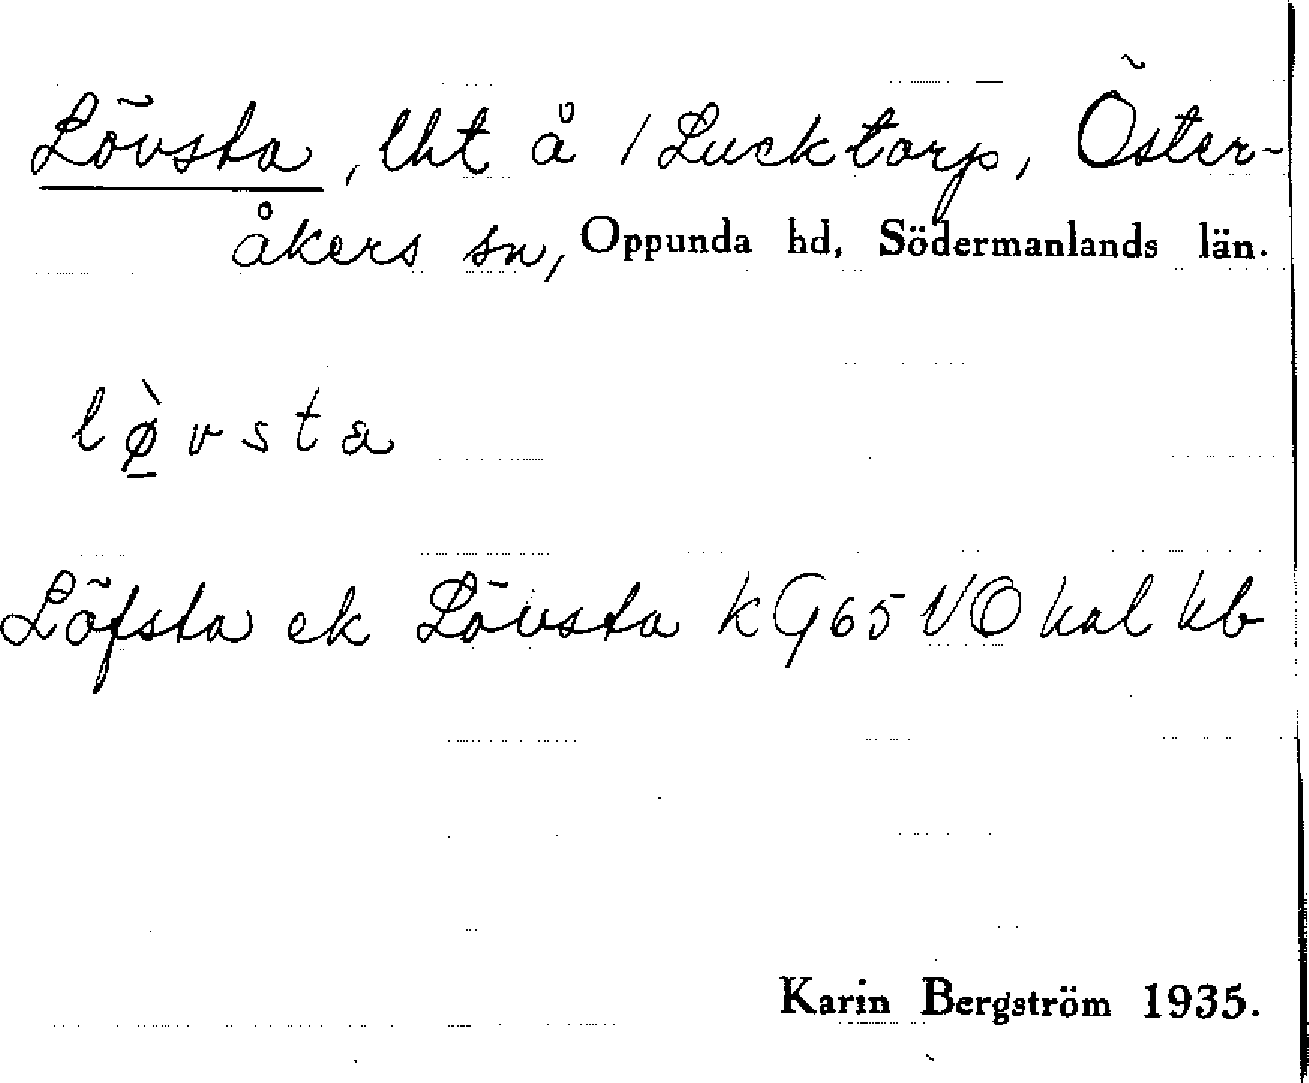 Lövsta, lht å / Lucktorp, Öster-
åkers sn, Oppunda hd, Södermanlands län.
lø̀vsta
Löfsta ek Lövsta kG65VO kal kb
Karin Bergström 1935.